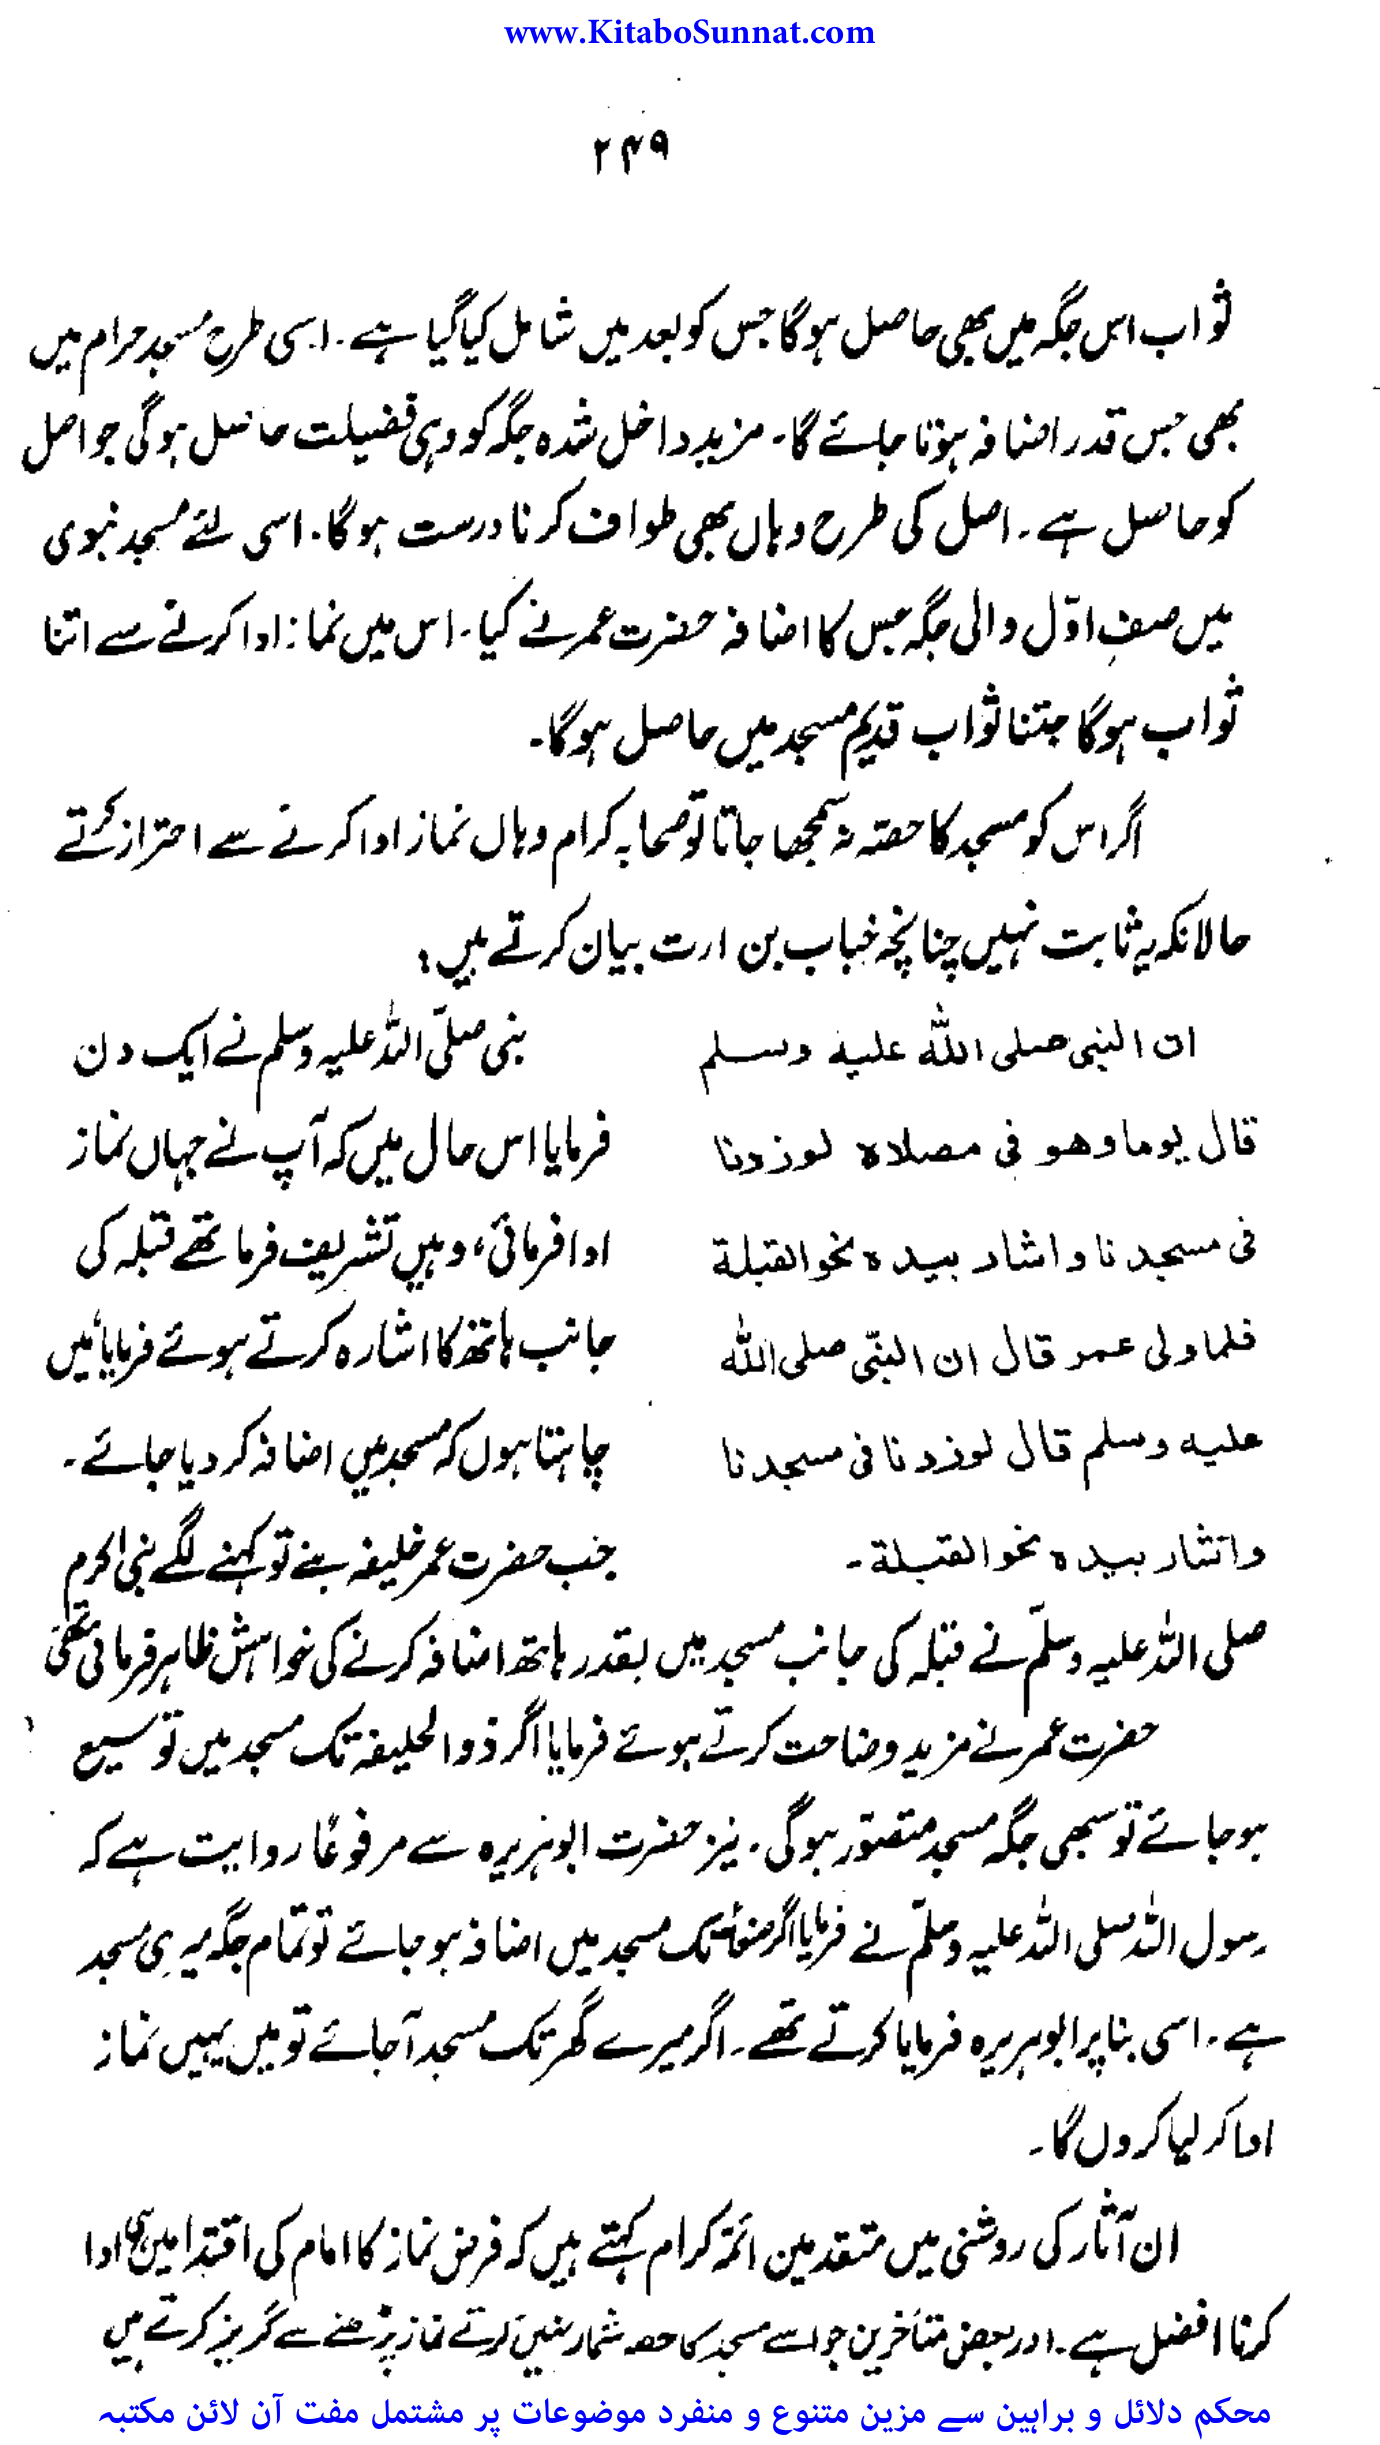 www.KitaboSunnat.com
۲۴۹
ثواب اس جگہ میں بھی حاصل ہوگا جس کو بعد میں شامل کیا گیا ہے۔ اسی طرح مسجد حرام میں
بھی جس قدر اضافہ ہوتا جائے گا۔ مزید داخل شدہ جگہ کو وہی فضیلت حاصل ہوگی جو اصل
کو حاصل ہے۔ اصل کی طرح وہاں بھی طواف کرنا درست ہوگا۔ اسی لئے مسجد نبوی
میں صفِ اوّل والی جگہ جس کا اضافہ حضرت عمر نے کیا۔ اس میں نماز ادا کرنے سے اتنا
ثواب ہوگا جتنا ثواب قدیم مسجد میں حاصل ہوگا۔
اگر اس کو مسجد کا حصّہ نہ سمجھا جاتا تو صحابہ کرام وہاں نماز ادا کرنے سے احتراز کرتے
حالانکہ یہ ثابت نہیں چنانچہ خباب بن ارت بیان کرتے ہیں؛
ان النبی صلی اللہ علیہ وسلم
قال یوما وھو فی مصلاہ لوزدنا
فی مسجدنا واشار بیدہ نحوالقبلة
فلما ولی عمر قال ان النبّی صلی اللہ
علیہ وسلم قال لوزدنا فی مسجدنا
واشار بیدہ نحوالقبلة۔
نبی صلّی اللہ علیہ وسلم نے ایک دن
فرمایا اس حال میں کہ آپ نے جہاں نماز
ادا فرمائی، وہیں تشریف فرما تھے قبلہ کی
جانب ہاتھ کا اشارہ کرتے ہوئے فرمایا میں
چاہتا ہوں کہ مسجد میں اضافہ کر دیا جائے۔
جب حضرت عمر خلیفہ بنے تو کہنے لگے نبی اکرم
صلی اللہ علیہ وسلّم نے قبلہ کی جانب مسجد میں بقدر ہاتھ اضافہ کرنے کی خواہش ظاہر فرمائی تھی
حضرت عمر نے مزید وضاحت کرتے ہوئے فرمایا اگر ذوالحلیفہ تک مسجد میں توسیع
ہو جائے تو سبھی جگہ مسجد متصوّر ہوگی۔ نیز حضرت ابوہریرہ سے مرفوعًا روایت ہے کہ
رسول اللہ صلی اللہ علیہ وسلّم نے فرمایا اگر صنعاء تک مسجد میں اضافہ ہو جائے تو تمام جگہ میری مسجد
ہے۔ اسی بنا پر ابوہریرہ فرمایا کرتے تھے۔ اگر میرے گھر تک مسجد آجائے تو میں یہیں نماز
ادا کر لیا کروں گا۔
ان آثار کی روشنی میں متقدمین ائمّہ کرام کہتے ہیں کہ فرض نماز کا امام کی اقتدا میں ہی ادا
کرنا افضل ہے۔ اور بعض متأخرین جو اسے مسجد کا حصہ شمار نہیں کرتے نماز پڑھنے سے گریز کرتے ہیں
محکم دلائل و براہین سے مزین متنوع و منفرد موضوعات پر مشتمل مفت آن لائن مکتبہ